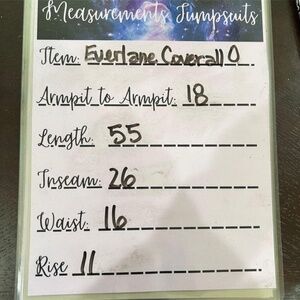 Measurements Jumpsuits
Item: Everlane Coverall 0
Armpit to Armpit: 18
Length: 55
Inseam: 26
Waist: 16
Rise 11